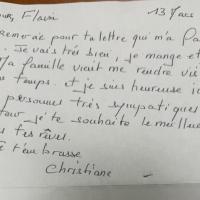 Flavi 13 Mars
remercie pour ta lettre qui m'a fai
Je vais très bien, je mange et
Ma famille vient me rendre vis
temps. et je suis heureuse i
personnes très sympatiques
je te souhaite le meilleu
tes rêves.
t'embrasse
Christiane